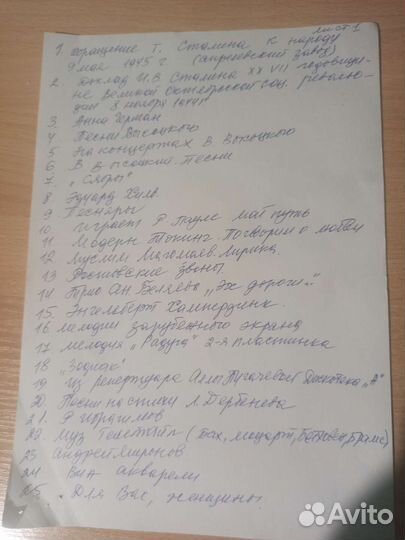 лист 1
1. обращение Т. Сталина к народу
9 мая 1945 г (апрелевский завод)
2. доклад И.В Сталина XX VII годовщи-
не Великой Октябрьской соц. револю-
ции 8 ноября 1944г
3 Анна Герман
4 Песни Высоцкого
5 На концертах В. Высоцкого
6 В. Высоцкий. Песни
7. „
8. Эдуард Хиль
9 Песняры
10 играет Р Паулс мой путь
11. Модерн Токинг. Поговори о любви
12 Муслим Магомаев. Лирика
13 Ростовские звоны
14 Трио Ан Беляева „Эх дороги.."
15. Энгельберт Хампердинк.
16 мелодии зарубежного экрана
17 мелодия „Радуга" 2-я пластинка
18 „Зодиак"
19 Из репертуара Аллы Пугачевой Дискотека „А"
20 Песни на стихи Л. Дербенева
21. Р Ибрагимов
22. Муз Телетайп (Бах, моцарт, Бетховен, Брамс)
23 Андрей Миронов
24 Виа акварели
25. Для Вас, женщины.
Avito